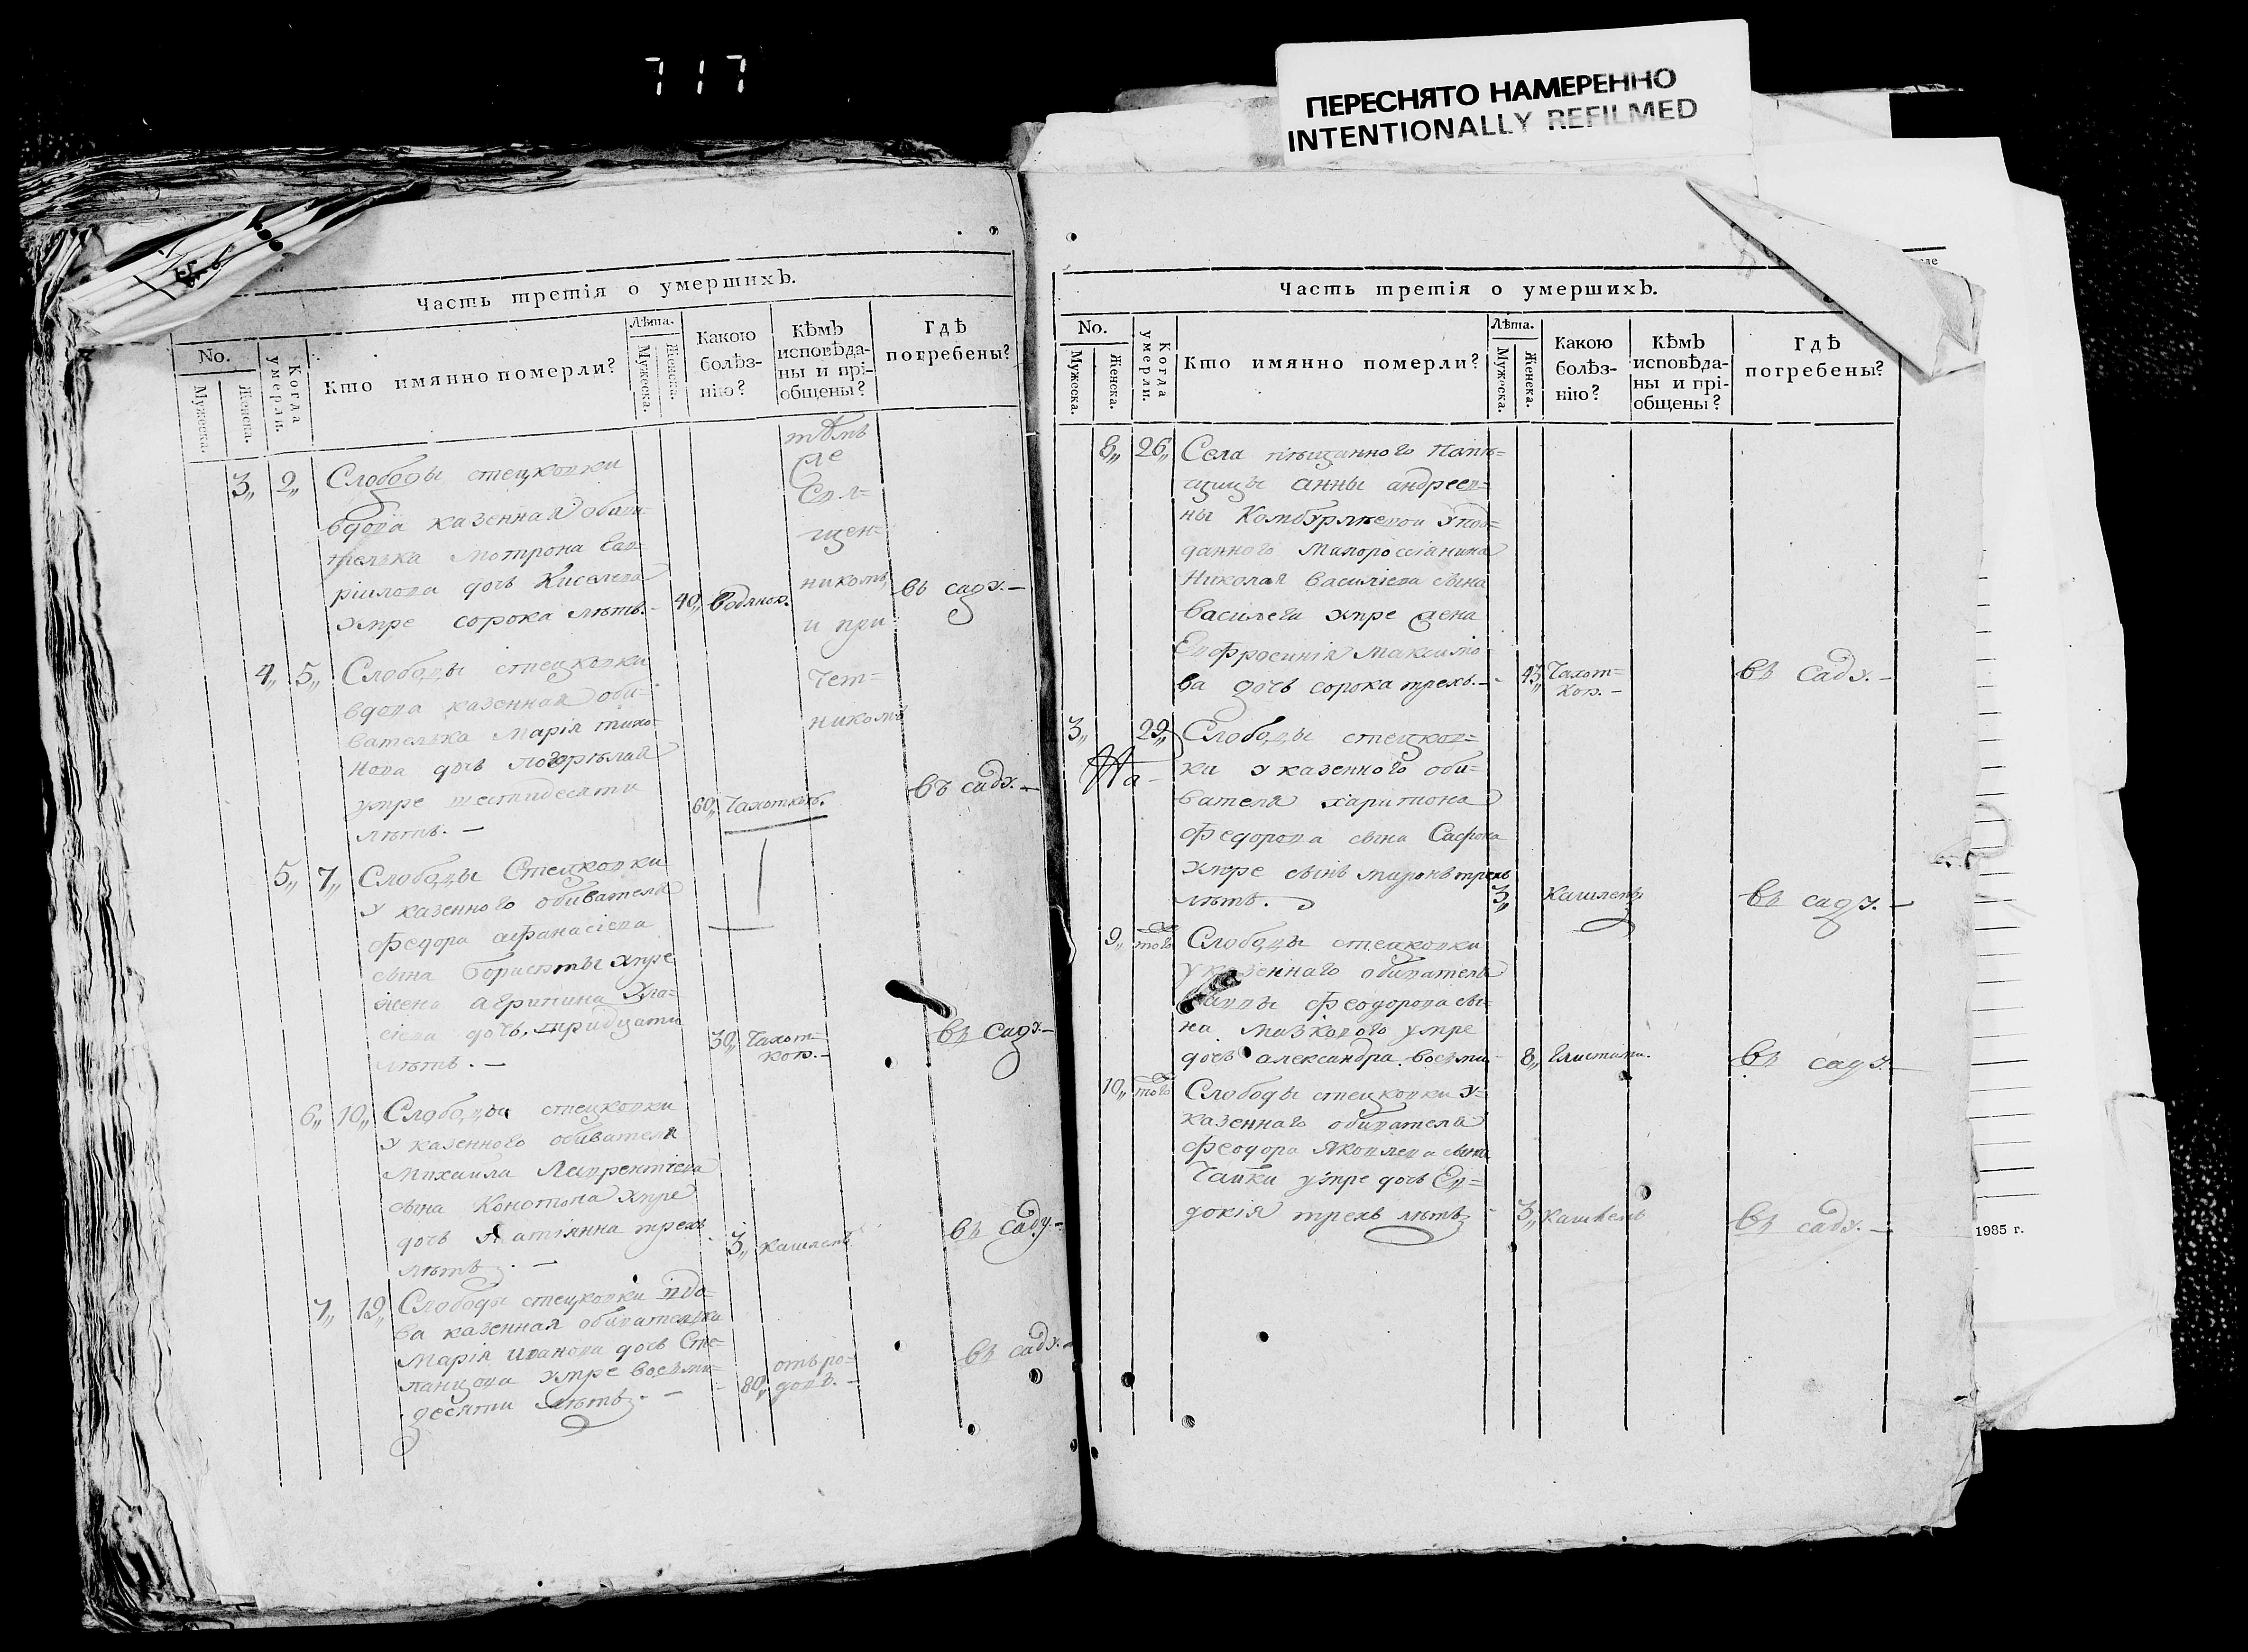 717
ПЕРЕСНЯТО НАМЕРЕННО
INTENTIONALLY REFILMED
Часть третія о умершихЪ.
No.
Мужеска.
Женска.
Когда умерли.
Кто имянно померли?
Лѣта.
Мужеска.
Женска.
Какою болѣз-
нію?
КѣмЪ
исповѣда-
ны и прі-
общены?
ГдѢ
погребены?
тѣмъ
же
Свя-
щен-
никомъ,
и при
чет-
никомъ
3„ 2„ Слободы стецковки
вдова казенная обива-
телька мотрона Гав-
ріилова дочь Киселева
умре сорока лѣтъ. - 40„ водянок. въ саду. -
4„ 5„ Слободы стецковки
вдова казенная оби-
вателька Марія тихо-
нова дочь погорѣлая
умре шестидесяти
лѣтъ. - 60„ Чахоткою. въ саду. -
5„ 7„ Слободы Стецковки
у казенного обивателя
федора афанасіева
сына умре
жена агрипина Ула-
сіева дочь, тридцати
лѣтъ. - 30„ Чахот-
кою. - въ саду -
6„ 10„ Слободы стецковки
у казенного обивателя
Михаила Лаврентіева
сына Конотопа умре
дочь татіянна трехъ
лѣтъ. - 3„ кашлемъ въ саду -
7„ 19„ Слободы стецковки вдо-
ва казенная обивателька
Марія иванова дочь Сте-
панцова умре восьми-
десяти лѣтъ. - 80„ отъ ро-
довъ. - въ саду. -
Часть третія о умершихЪ.
No.
Мужеска.
Женска.
Когда умерли.
Кто имянно померли?
Лѣта.
Мужеска.
Женска.
Какою болѣз-
нію?
КѣмЪ
исповѣда-
ны и прі-
общены?
ГдѢ
погребены?
8„ 26„ Села пѣщанного помѣ-
щицы анны андреев-
ны Комбурлѣевой у под-
данного малороссіянина
Николая василіева сына
умре жена
Евфросинія максимо
ва дочь сорока трехъ. - 43„ Чахот-
кою. - въ саду. -
3„ 29„ Слободы стецков-
ки у казенного оби-
вателя харитона
федорова сына
умре сынъ миронъ трехъ
лѣтъ. 3„ кашлемъ въ саду. -
9„ того Слободы стецковки
у казеннаго обивателя
феодорова сы-
на мазкового умре
дочь александра восьми 8„ Глистами. въ саду. -
10„ того Слободы стецковки у-
казеннаго обивателя
феодора Яковлева сына
Чайки умре дочь Ев-
докія трехъ лѣтъ - 3„ кашлемъ въ саду. -
1985 г.